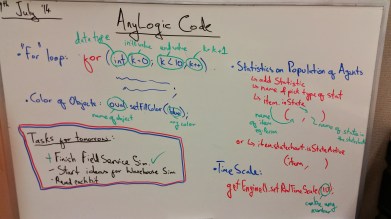 July '14
AnyLogic Code
data type
init value
end value
k=k+1
• "For" loop: for (int k=0; k<10; k++)
• Color of Objects: oval.setFillColor(blue);
name of object
any color
Tasks for tomorrow:
+ Finish Field Service Sim ✓
- Start ideas for Warehouse Sim
- Read
• Statistics on Population of Agents
↳ add Statistic
↳ name & pick type of stat
↳ item.inState
( , )
name of item
name of state in the statechart
or ↳ item.statechart.isStateActive
(item, )
• Time Scale:
getEngine().setRealTimeScale(10)
can be any number